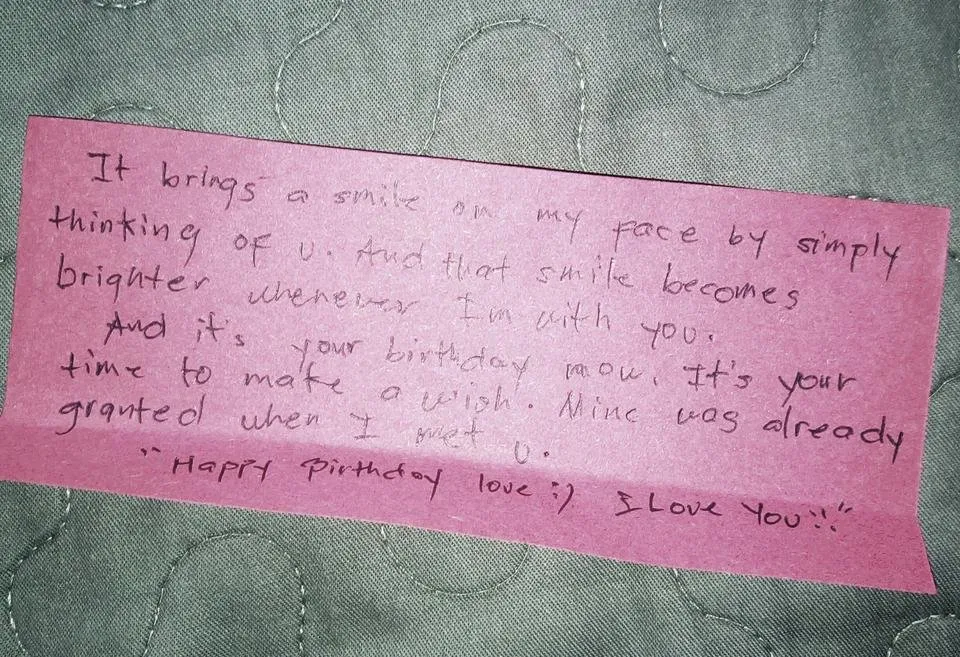 It brings a smile on my face by simply
thinking of u. And that smile becomes
brighter whenever I'm with you.
And it's your birthday now. It's your
time to make a wish. Mine was already
granted when I met u.
"Happy Birthday love :) I Love You!!"